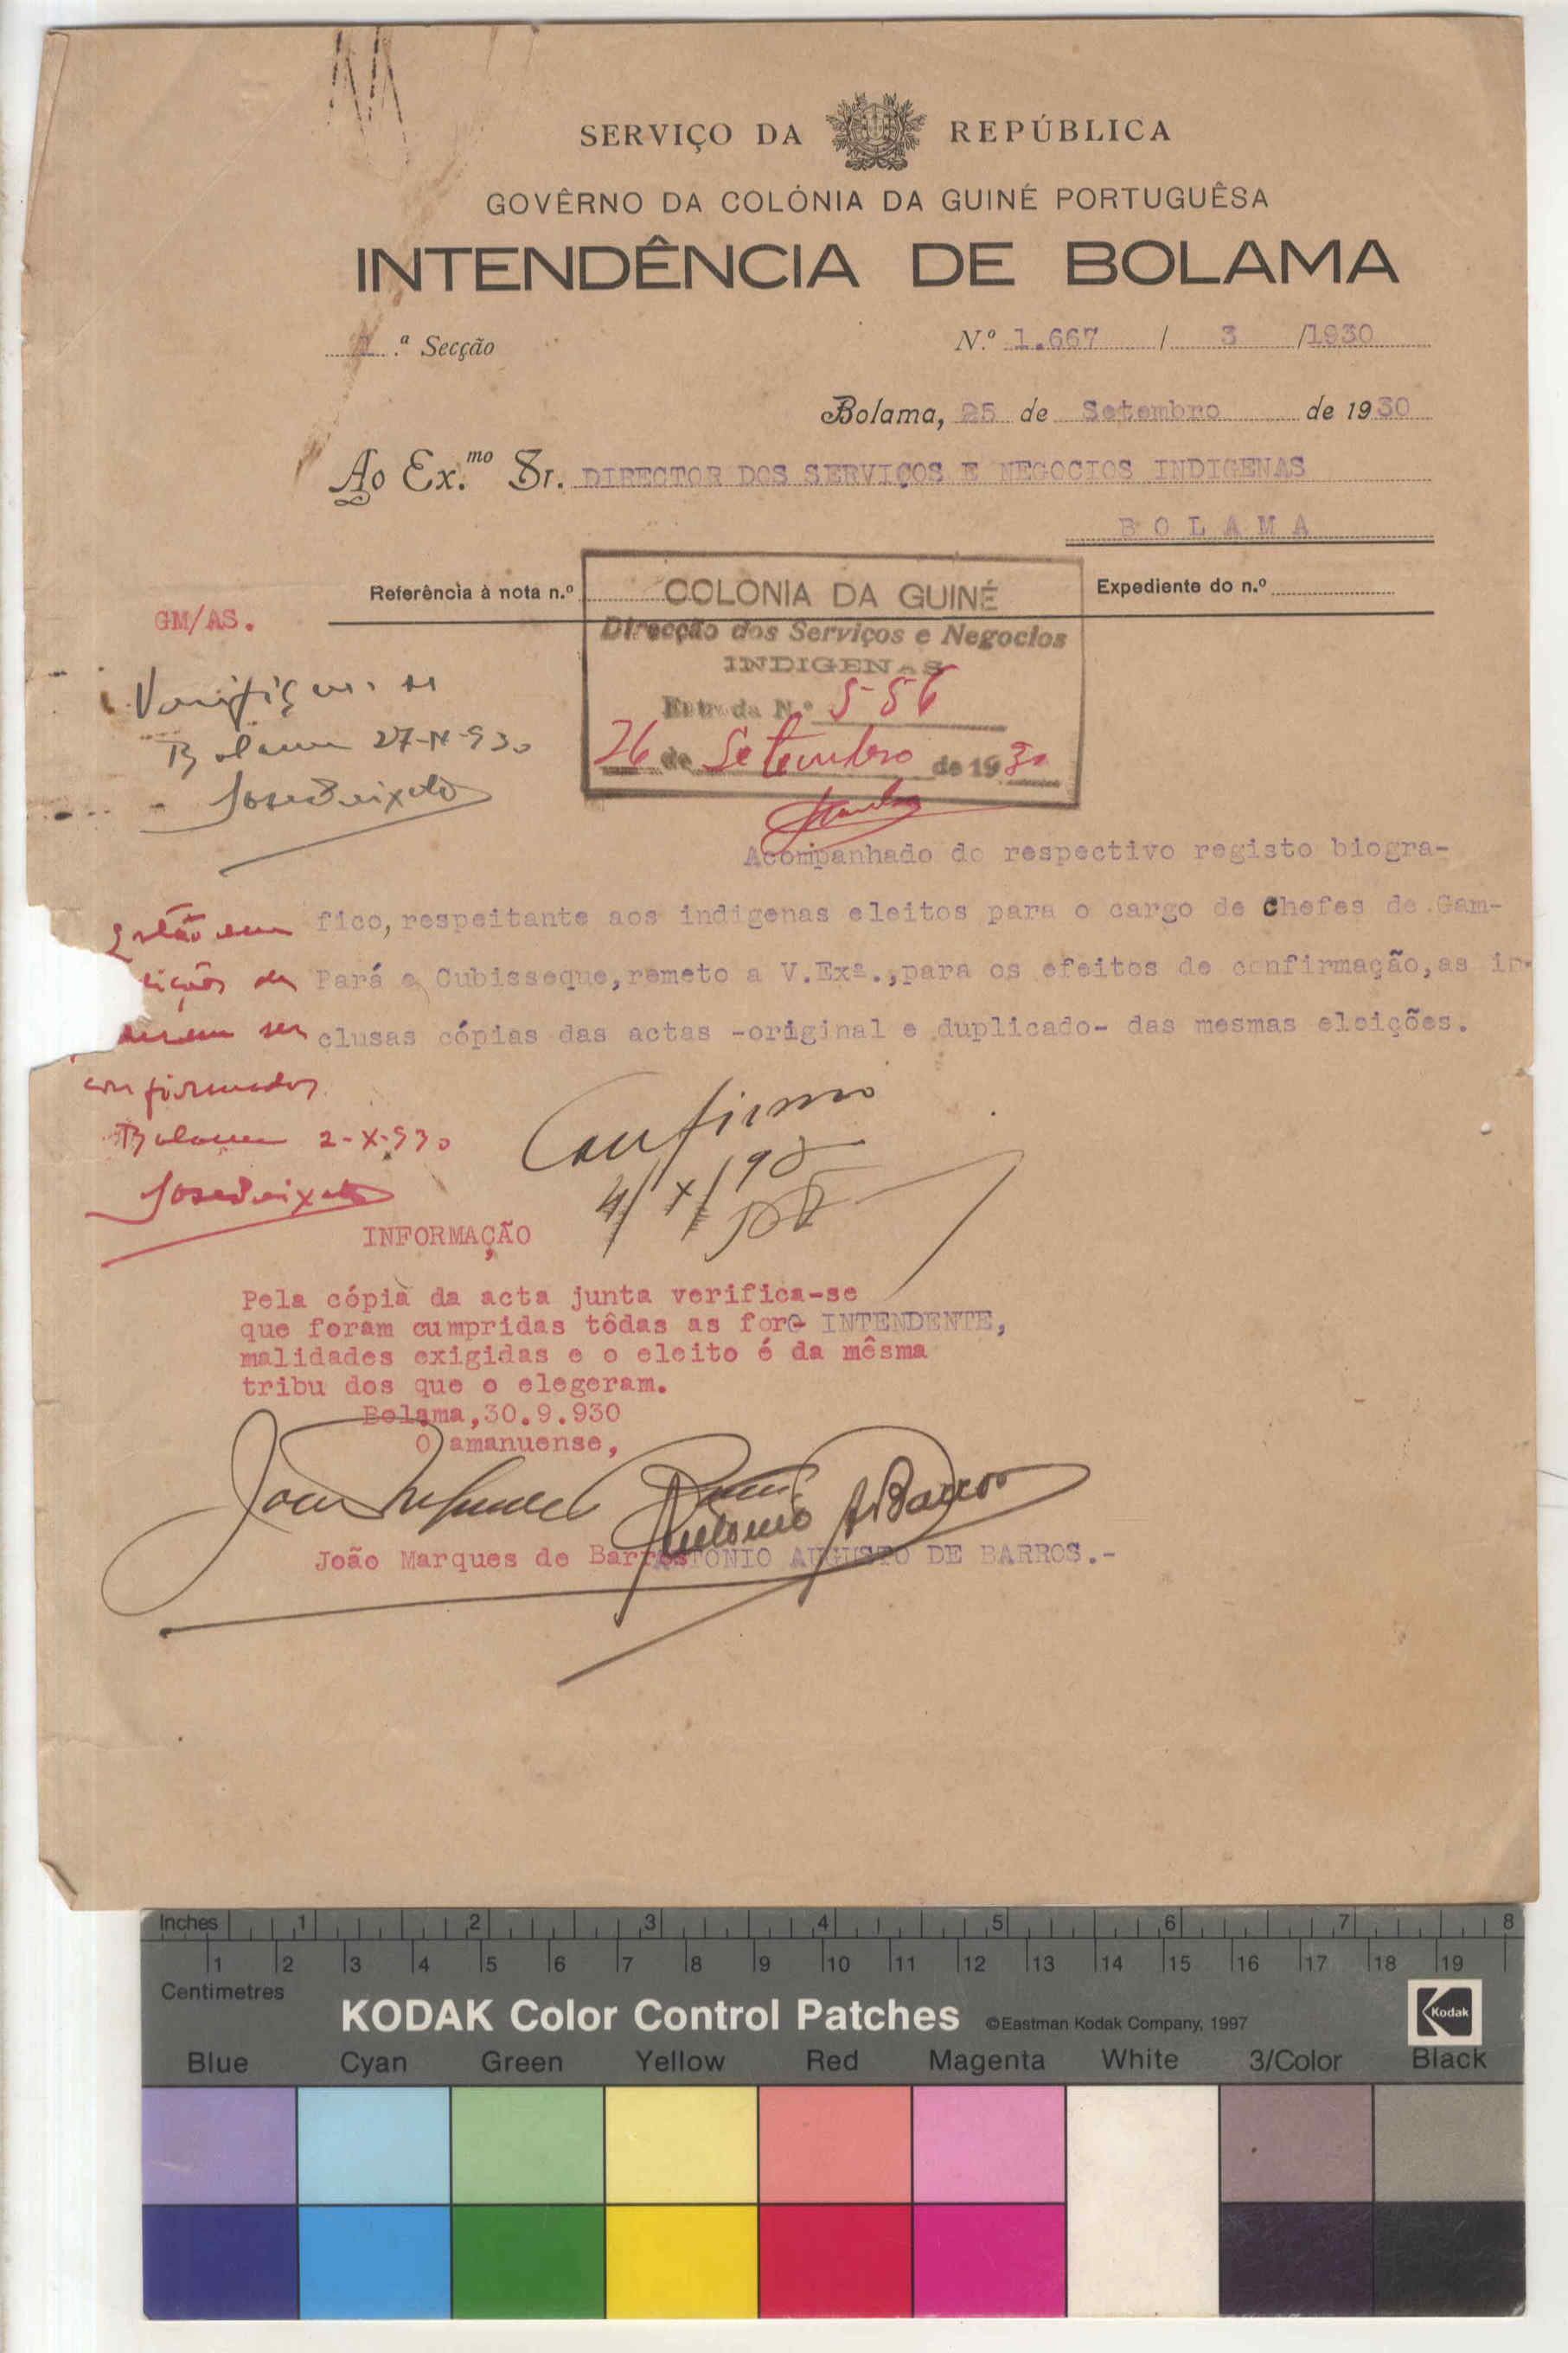 SERVIÇO DA REPÚBLICA
GOVÊRNO DA COLÓNIA DA GUINÉ PORTUGUÊSA
INTENDÊNCIA DE BOLAMA
.ª Secção
N.º 1.667 / 3 /1930
Bolama, 25 de Setembro de 1930
Ao Ex.mo Sr. DIRECTOR DOS SERVIÇOS E NEGOCIOS INDIGENAS
BOLAMA
Referência à nota n.º
Expediente do n.º
COLONIA DA GUINÉ
Direcção dos Serviços e Negocios
INDIGENAS
Entrada N.º 556
26 de Setembro de 1930
GM/AS.
Verifique-se
Bolama 27-IX-930
José Peixoto
Acompanhado do respectivo registo biogra-
fico, respeitante aos indigenas eleitos para o cargo de Chefes de Gam-
Pará e Cubisseque, remeto a V.Exª., para os efeitos de confirmação, as in-
clusas cópias das actas -original e duplicado- das mesmas eleições.
Estão em
dições de
ser
confirmados
Bolama 2-X-930
José Peixoto
Confirmo
4/X/930
INFORMAÇÃO
Pela cópia da acta junta verifica-se
que foram cumpridas tôdas as for-
malidades exigidas e o eleito é da mêsma
tribu dos que o elegeram.
Bolama, 30.9.930
O amanuense,
João Marques de Barros
João Marques de Barros
O INTENDENTE,
Antonio A Barros
ANTONIO AUGUSTO DE BARROS.-
Inches 1 2 3 4 5 6 7 8
1 2 3 4 5 6 7 8 9 10 11 12 13 14 15 16 17 18 19
Centimetres
KODAK Color Control Patches ©Eastman Kodak Company, 1997 Kodak
Blue Cyan Green Yellow Red Magenta White 3/Color Black